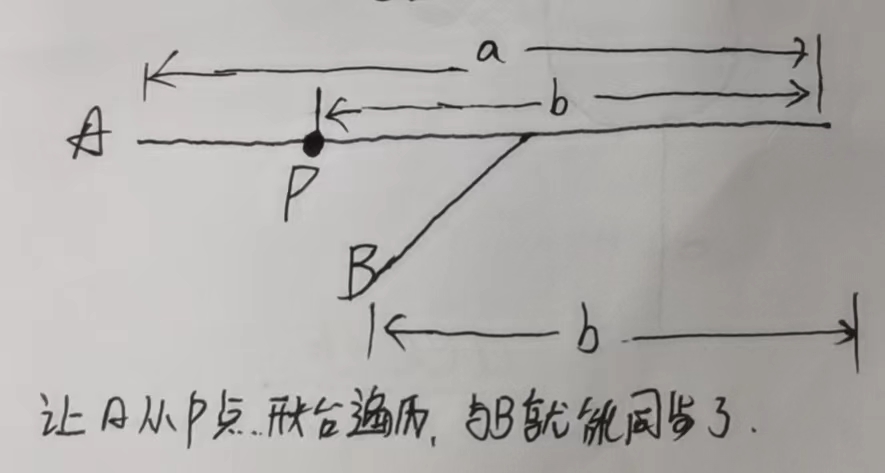 a
b
A
P
B
b
让A从P点开始遍历,与B就能同步了.